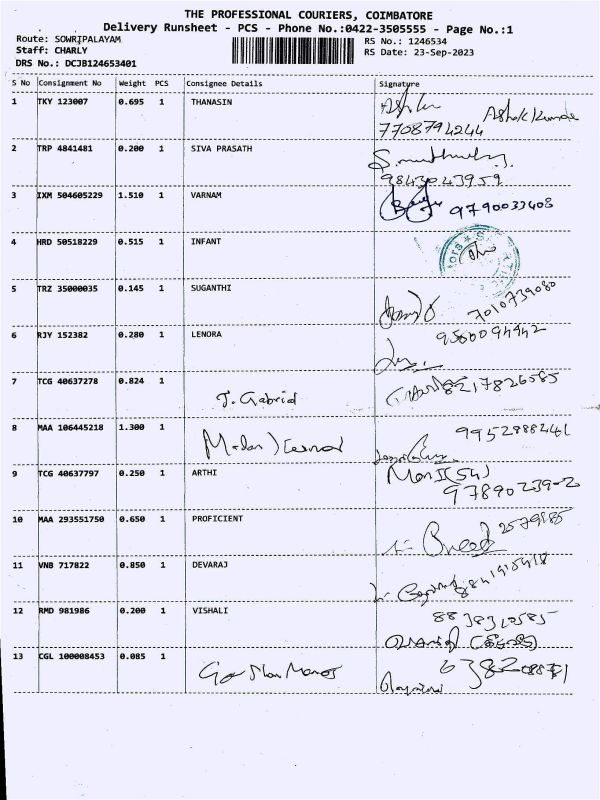 THE PROFESSIONAL COURIERS, COIMBATORE
Delivery Runsheet - PCS - Phone No.:0422-3505555 - Page No.:1
Route: SOWRIPALAYAM
RS No.: 1246534
Staff: CHARLY
RS Date: 23-Sep-2023
DRS No.: DCJB124653401
S No Consignment No Weight PCS Consignee Details Signature
1 TKY 123007 0.695 1 THANASIN
7708794244
2 TRP 4841481 0.200 1 SIVA PRASATH
9843043959
3 IXM 504605229 1.510 1 VARNAM 9790033408
4 HRD 50518229 0.515 1 INFANT
5 TRZ 35000035 0.145 1 SUGANTHI 7010739080
6 RJY 152382 0.280 1 LENORA 9500094942
7 TCG 40637278 0.824 1 J. Gabriel 8217826585
8 MAA 106445218 1.300 1 9952888241
9 TCG 40637797 0.250 1 ARTHI
10 MAA 293551750 0.650 1 PROFICIENT
11 VNB 717822 0.850 1 DEVARAJ
12 RMD 981986 0.200 1 VISHALI
13 CGL 100008453 0.085 1